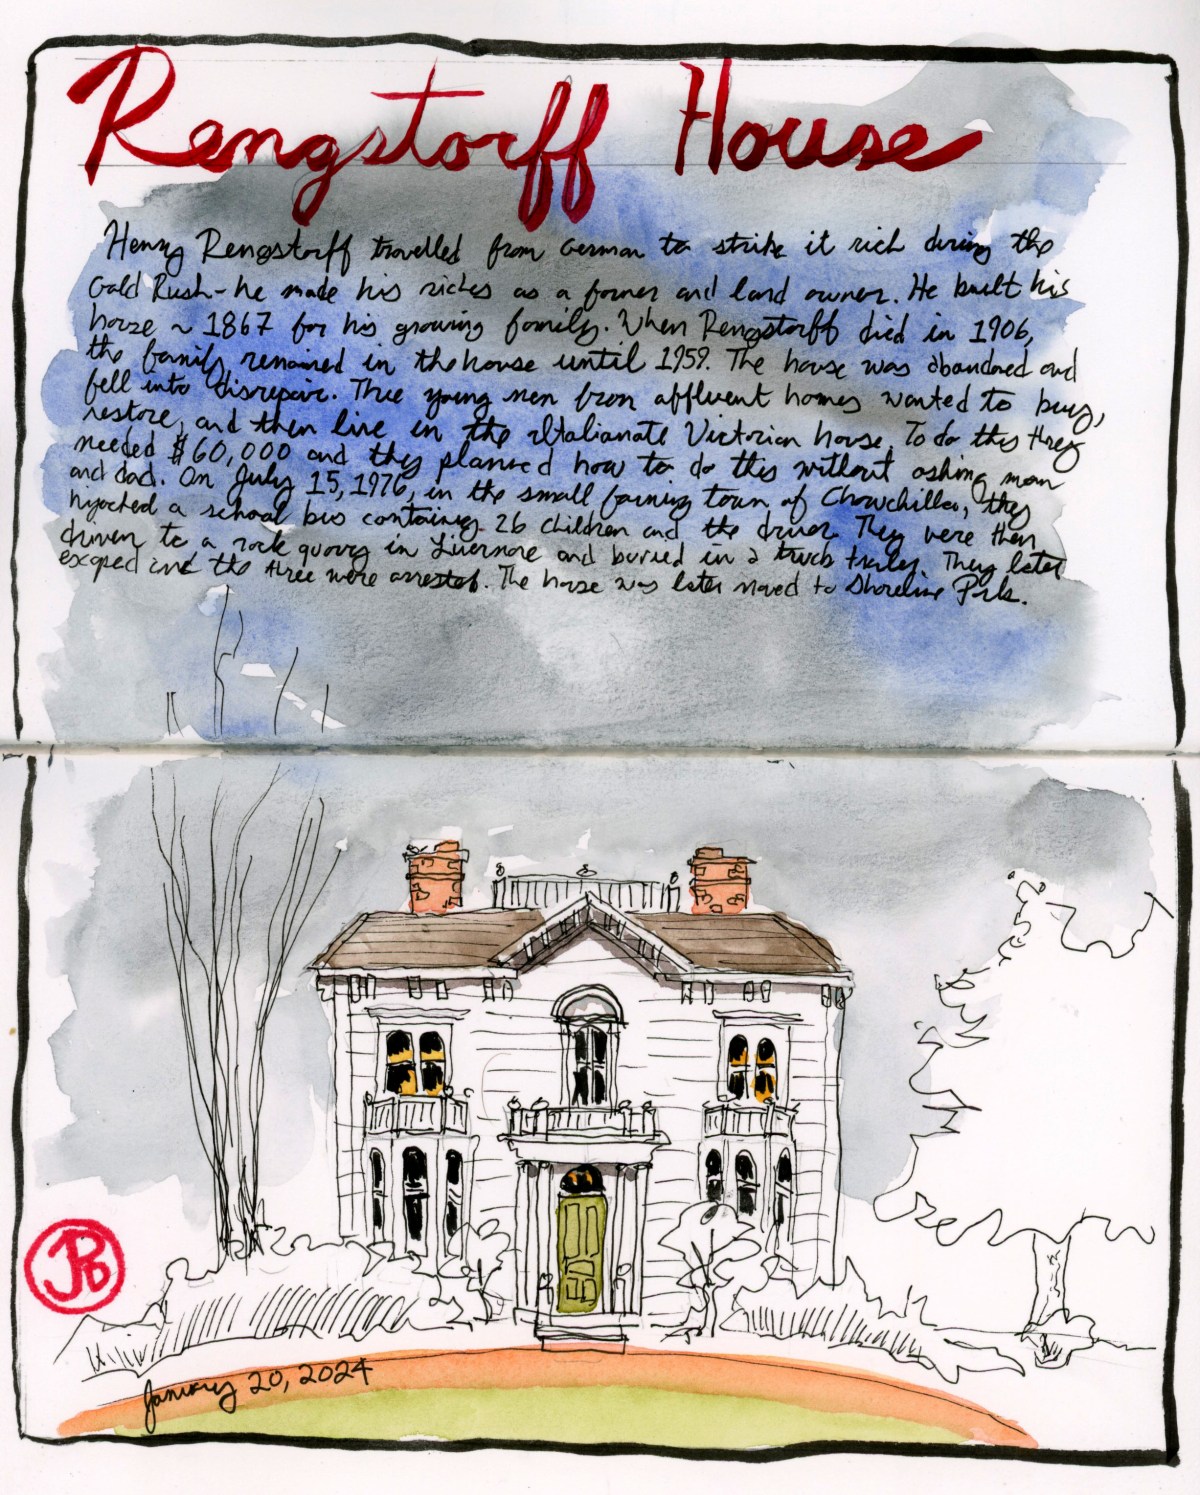 Rengstorff House
Henry Rengstorff travelled from German to strike it rich during the
Gold Rush - he made his riches as a farmer and land owner. He built his
house ~ 1867 for his growing family. When Rengstorff died in 1906,
the family remained in the house until 1959. The house was abandoned and
fell into disrepair. Three young men from affluent homes wanted to buy,
restore, and then live in the Italianate Victorian house. To do this they
needed $60,000 and they planned how to do this without asking mom
and dad. On July 15, 1976, in the small farming town of Chowchilla, they
hijacked a school bus containing 26 children and the driver. They were then
driven to a rock quarry in Livermore and buried in a truck They later
escaped and the three were arrested. The house was later moved to Shoreline Park.
JPD
January 20, 2024